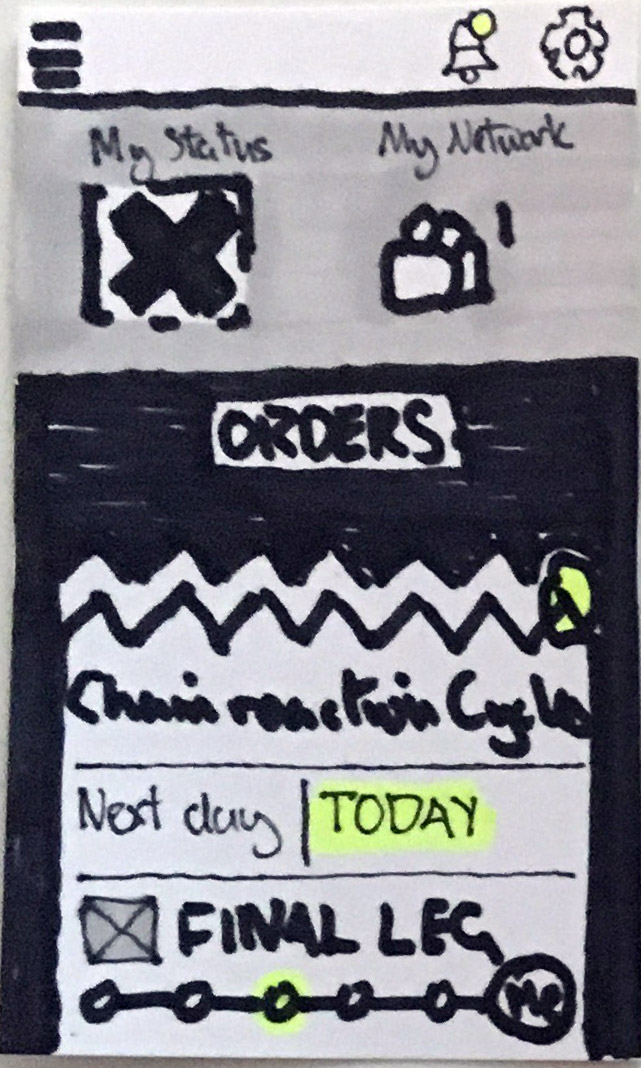 My Status
My Network
ORDERS
Chain reaction Cycles
Next day | TODAY
FINAL LEG
Me